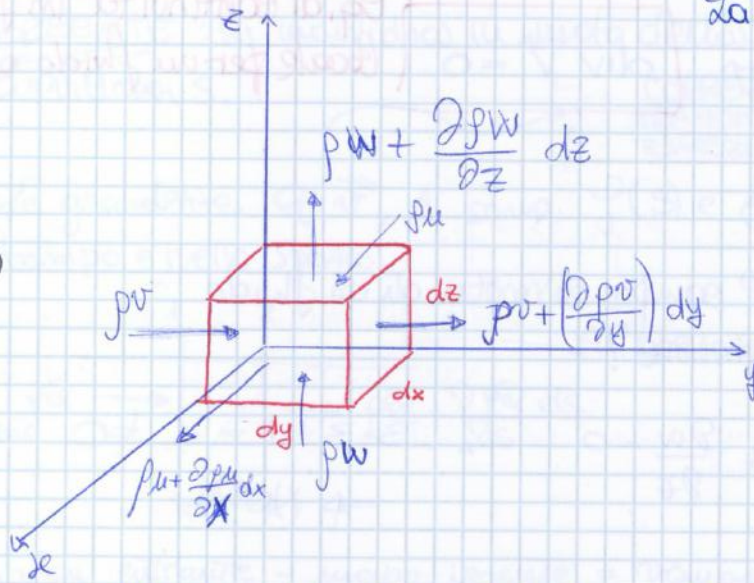 2a
z
ρw + ∂ρw/∂z dz
ρu
ρv
dz
ρv + (∂ρv/∂y) dy
y
dx
dy
ρw
ρu + ∂ρu/∂x dx
x